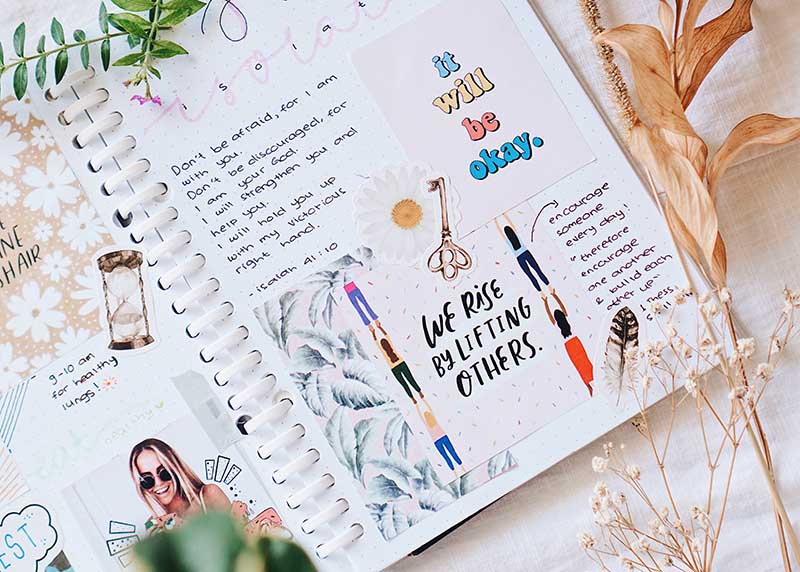 isolat
Don't be afraid, for I am
with you.
Don't be discouraged, for
I am your God.
I will strengthen you and
help you.
I will hold you up
with my victorious
right hand.
-Isaiah 41:10
it
will
be
okay.
encourage
someone
every day!
"therefore
encourage
one another
& build each
other up"
1 thess.
WE RISE
BY LIFTING
OTHERS.
9-10 am
for healthy
lungs!
EST